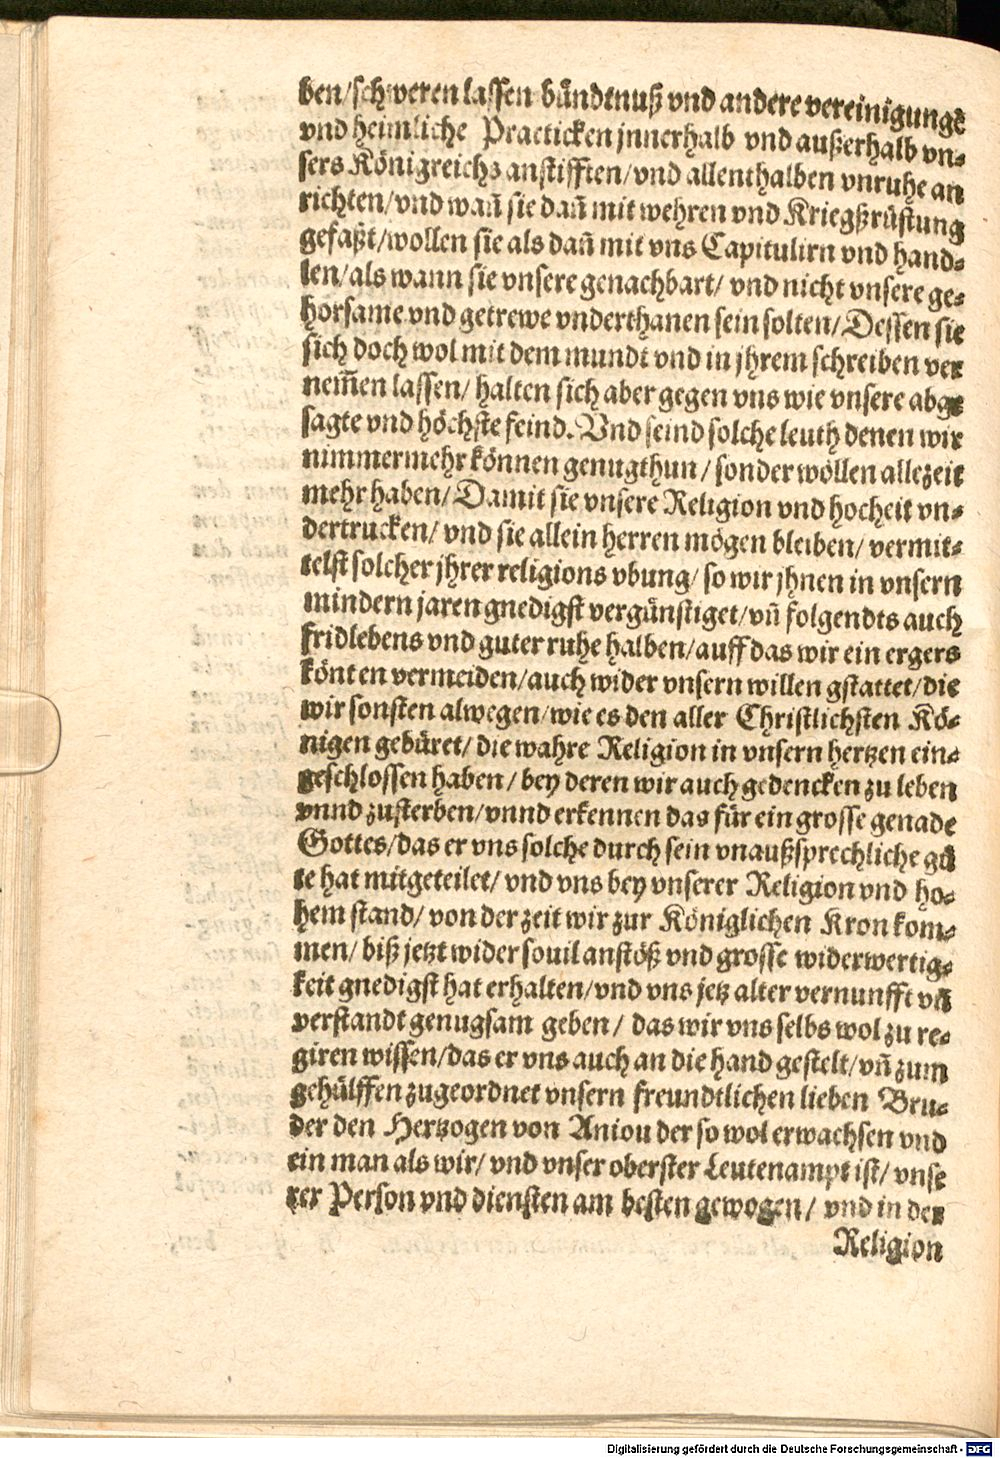 ben/schweren lassen bündtnuß vnd andere vereinigunge
vnd heimliche Practicken jnnerhalb vnd außerhalb vn-
sers Königreichs anstifften/vnd allenthalben vnruhe an
richten/vnd wañ sie dañ mit wehren vnd Kriegßrüstung
gefaßt/wollen sie als dañ mit vns Capitulirn vnd hand-
len/als wann sie vnsere genachbart/ vnd nicht vnsere ge-
horsame vnd getrewe vnderthanen sein solten/Dessen sie
sich doch wol mit dem mundt vnd in jhrem schreiben ver
nem̄en lassen/ halten sich aber gegen vns wie vnsere abge
sagte vnd höchste feind. Vnd seind solche leuth denen wir
nimmermehr können genugthun/ sonder wöllen allezeit
mehr haben/Damit sie vnsere Religion vnd hocheit vn-
dertrucken/ vnd sie allein herren mögen bleiben/ vermit-
telst solcher jhrer religions vbung/ so wir jhnen in vnsern
mindern jaren gnedigst vergünstiget/vñ folgendts auch
fridlebens vnd guter ruhe halben/auff das wir ein ergers
könten vermeiden/auch wider vnsern willen gstattet/die
wir sonsten alwegen/wie es den aller Christlichsten Kö-
nigen gebüret/ die wahre Religion in vnsern hertzen ein-
geschlossen haben/ bey deren wir auch gedencken zu leben
vnnd zusterben/vnnd erkennen das für ein grosse genade
Gottes/das er vns solche durch sein vnaußsprechliche gü
te hat mitgeteilet/ vnd vns bey vnserer Religion vnd ho-
hem stand/ von der zeit wir zur Königlichen Kron kom-
men/ biß jetzt wider souil anstöß vnd grosse widerwertig-
keit gnedigst hat erhalten/vnd vns jetz alter vernunfft vñ
verstandt genugsam geben/ das wir vns selbs wol zu re-
giren wissen/das er vns auch an die hand gestelt/vñ zum
gehülffen zugeordnet vnsern freundtlichen lieben Bru-
der den Hertzogen von Aniou der so wol erwachsen vnd
ein man als wir/ vnd vnser oberster Leutenampt ist/ vnse
rer Person vnd diensten am besten gewogen/ vnd in der
Religion
Digitalisierung gefördert durch die Deutsche Forschungsgemeinschaft - DFG